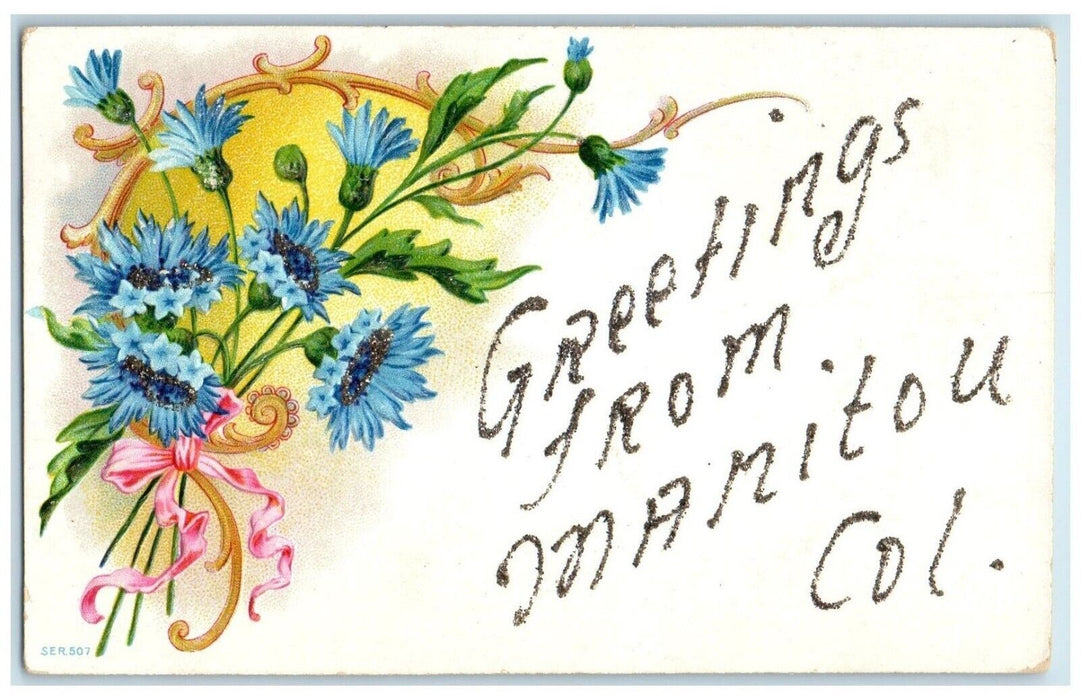 Greetings
from
Manitou
Col.
SER.507